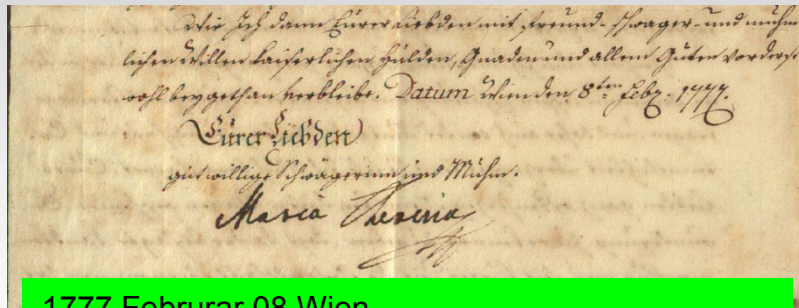 Wie Ich dann Eürer Liebden mit freund- schwager- und muhm
lichen Willen Kaiserlichen Hulden, Gnaden und allem Guten vorderst
wohl beygethan verbleibe. Datum Wien den 8ten Febr: 1777.
Eürer Liebden
gutwillige Schwägerin und Muhm.
Maria Theresia
1777 Februrar 08 Wien